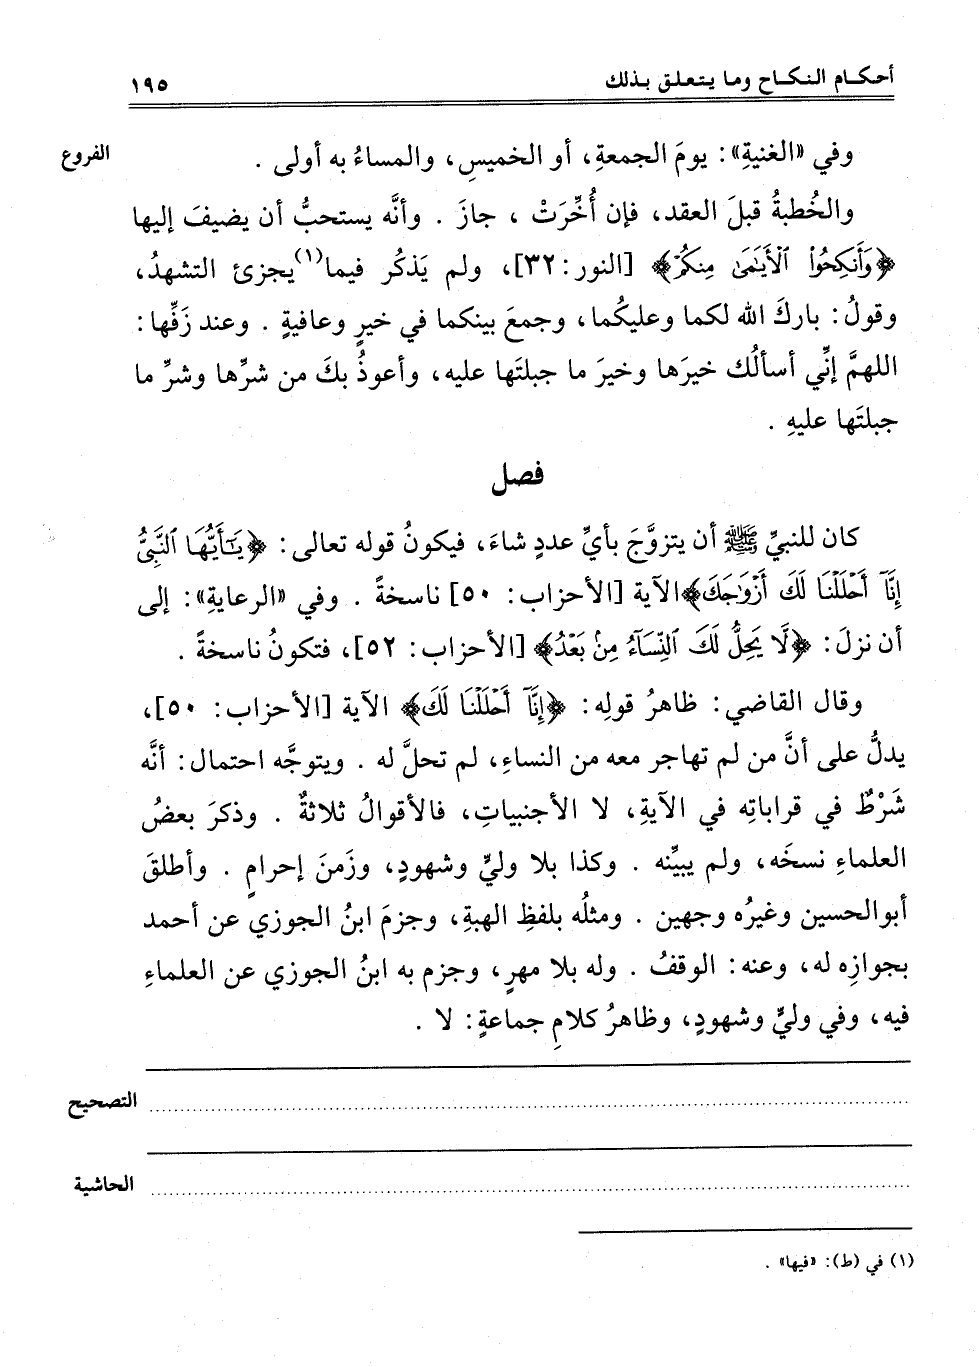 أحكام النكاح وما يتعلق بذلك ١٩٥
الفروع
وفي «الغنيةِ»: يومَ الجمعةِ، أو الخميسِ، والمساءُ به أولى .
والخُطبةُ قبلَ العقد، فإن أُخِّرَتْ ، جازَ . وأنَّه يستحبُّ أن يضيفَ إليها
﴿وَأَنكِحُوا۟ ٱلْأَيَٰمَىٰ مِنكُمْ﴾ [النور: ٣٢]، ولم يَذكُر فيما(١) يجزئ التشهدُ،
وقولُ: باركَ الله لكما وعليكُما، وجمعَ بينكما في خيرٍ وعافيةٍ . وعند زَفِّها:
اللهمَّ إنِّي أسألُك خيرَها وخيرَ ما جبلتَها عليه، وأعوذُ بكَ من شرِّها وشرِّ ما
جبلتَها عليهِ .
فصل
كان للنبيِّ ﷺ أن يتزوَّجَ بأيِّ عددٍ شاءَ، فيكونُ قوله تعالى: ﴿يَٰٓأَيُّهَا ٱلنَّبِىُّ
إِنَّآ أَحْلَلْنَا لَكَ أَزْوَٰجَكَ﴾ الآية [الأحزاب: ٥٠] ناسخةً . وفي «الرعايةِ»: إلى
أن نزلَ: ﴿لَّا يَحِلُّ لَكَ ٱلنِّسَآءُ مِنۢ بَعْدُ﴾ [الأحزاب: ٥٢]، فتكونُ ناسخةً .
وقال القاضي: ظاهرُ قولِه: ﴿إِنَّآ أَحْلَلْنَا لَكَ﴾ الآية [الأحزاب: ٥٠]،
يدلُّ على أنَّ من لم تهاجر معه من النساءِ، لم تحلَّ له . ويتوجَّه احتمال: أنَّه
شَرْطٌ في قراباتِه في الآيةِ، لا الأجنبياتِ، فالأقوالُ ثلاثةٌ . وذكرَ بعضُ
العلماءِ نسخَه، ولم يبيِّنه . وكذا بلا وليٍّ وشهودٍ، وزَمنَ إحرامٍ . وأطلقَ
أبوالحسين وغيرُه وجهين . ومثلُه بلفظِ الهبةِ، وجزمَ ابنُ الجوزي عن أحمد
بجوازِه له، وعنه: الوقفُ . وله بلا مهرٍ، وجزم به ابنُ الجوزي عن العلماءِ
فيه، وفي وليٍّ وشهودٍ، وظاهرُ كلامِ جماعةٍ: لا .
التصحيح
الحاشية
(١) في (ط): «فيها» .